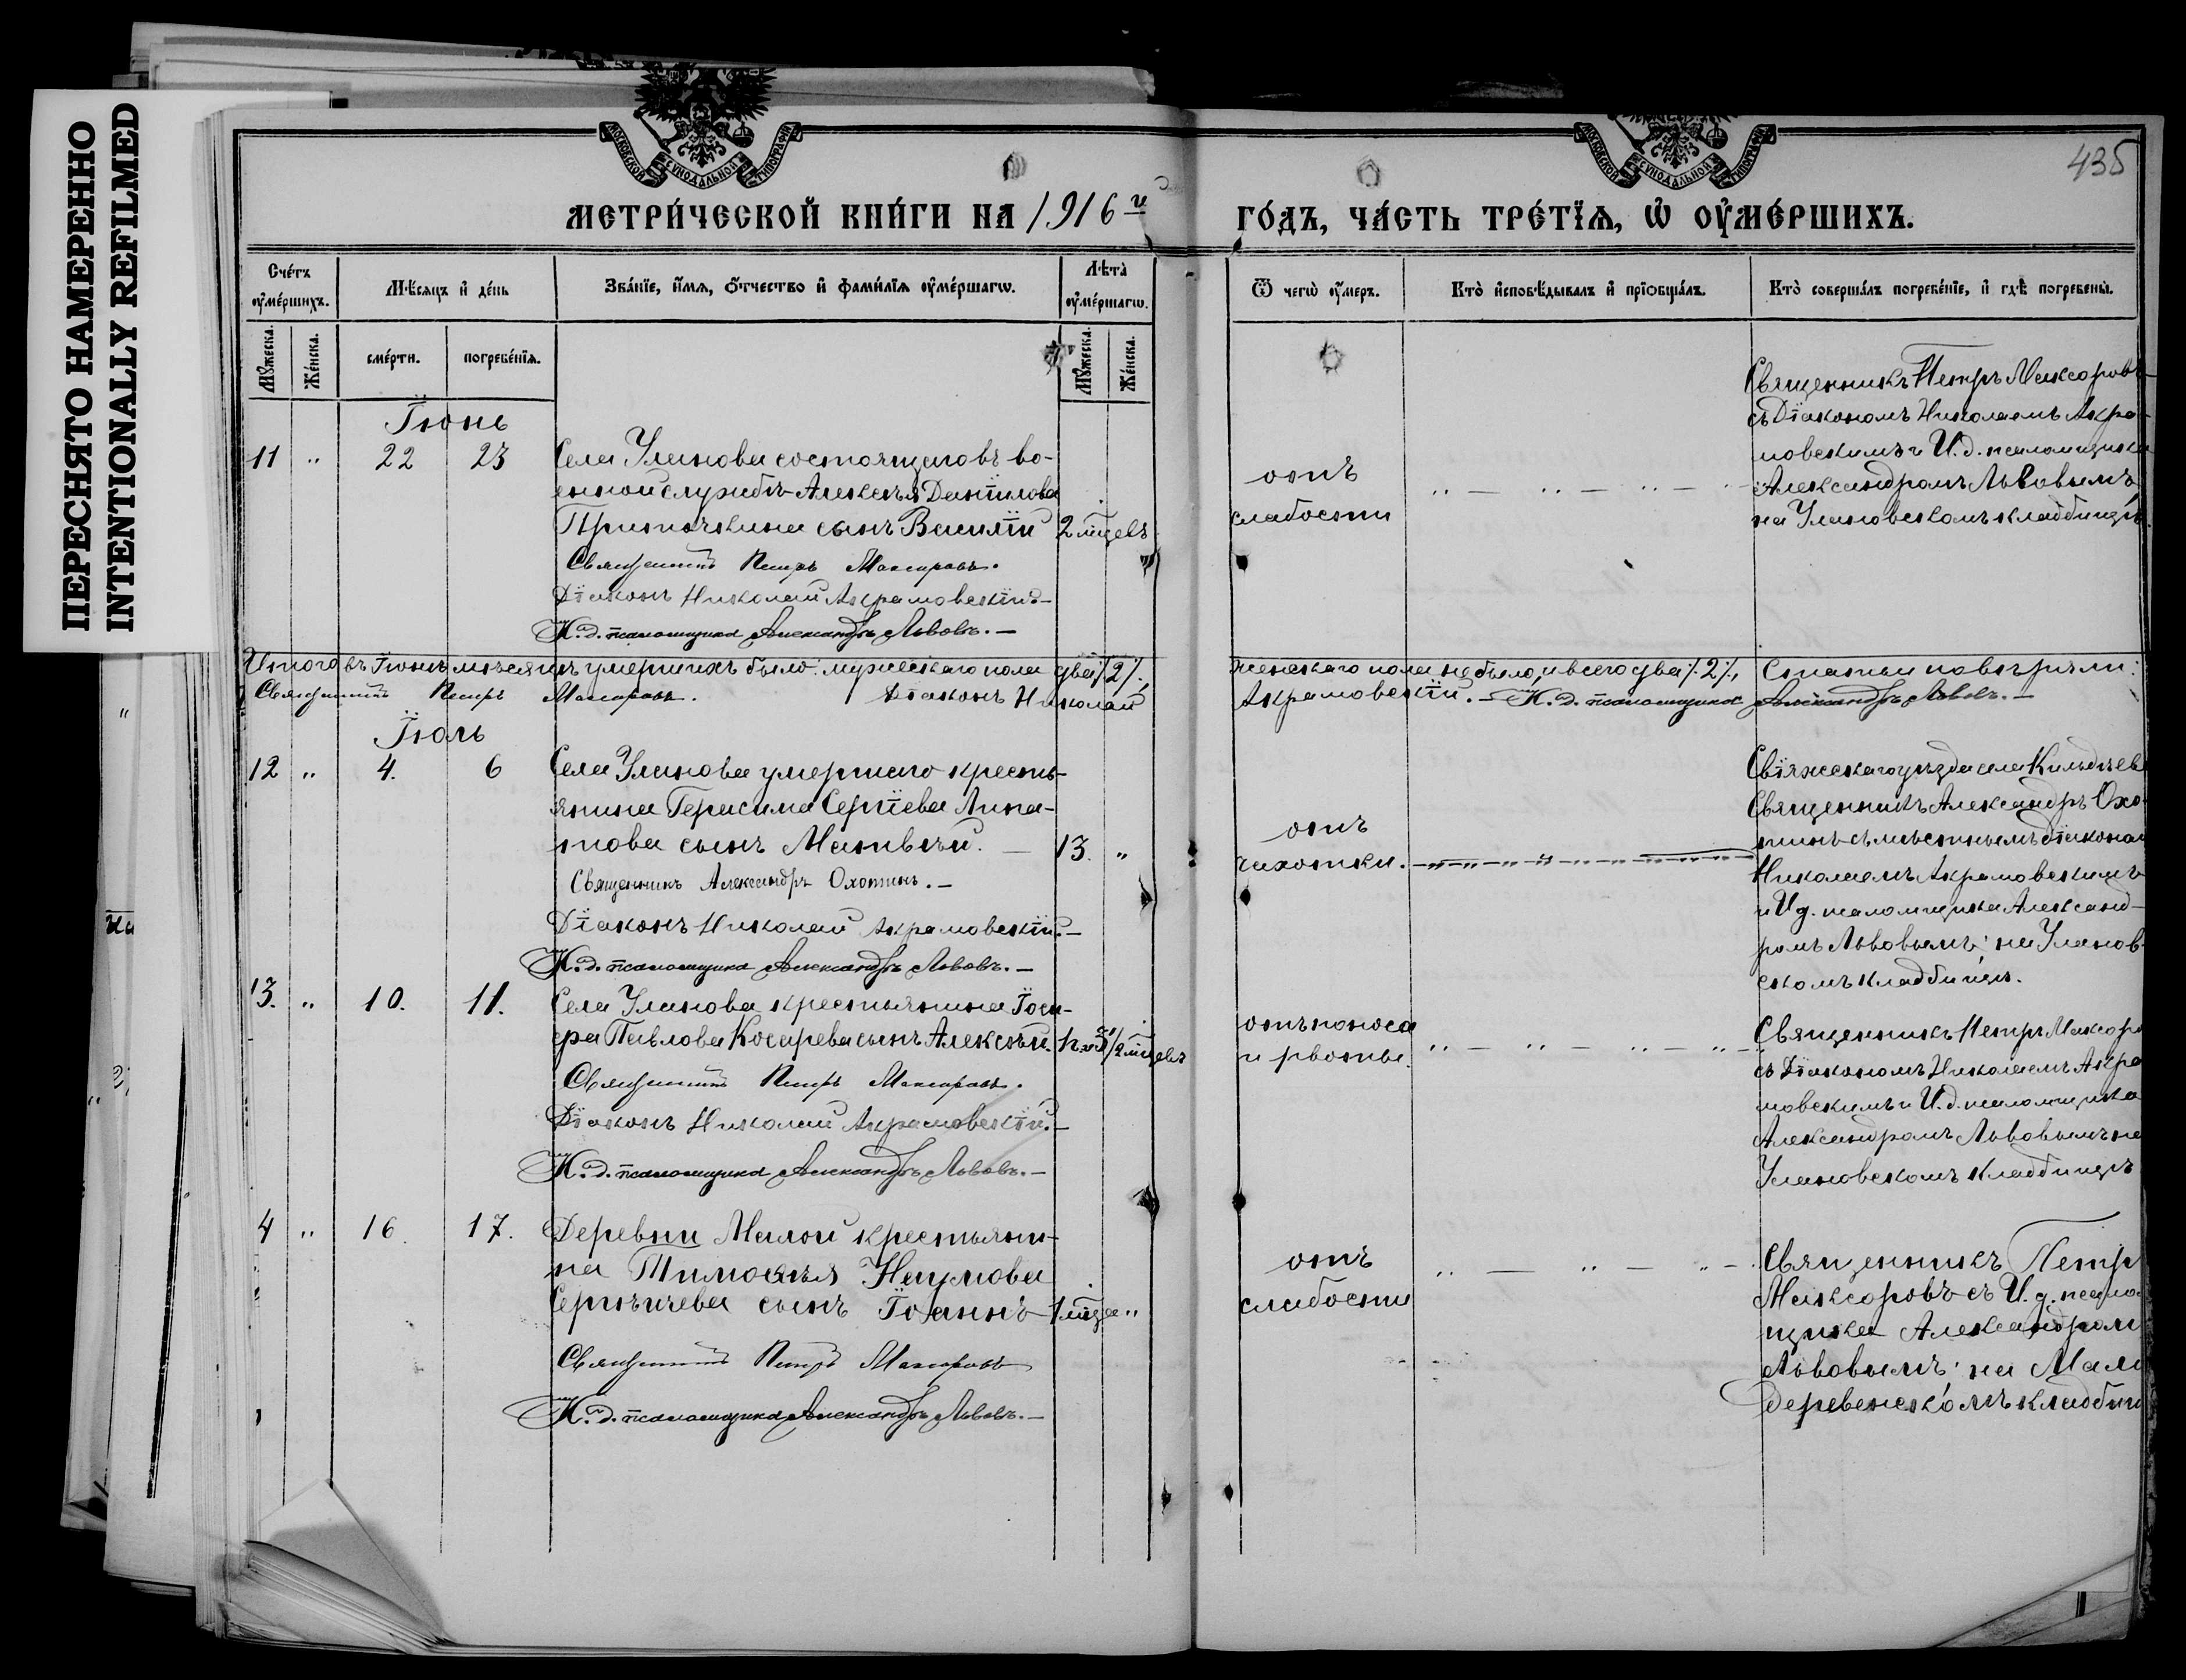 ПЕРЕСНЯТО НАМЕРЕННО
INTENTIONALLY REFILMED
МОСКОВСКОЙ СУНОДАЛЬНОЙ ТИПОГРАФІИ
МОСКОВСКОЙ СУНОДАЛЬНОЙ ТИПОГРАФІИ
435
МЕТРИ́ЧЕСКОЙ КНИ́ГИ НА 1916й
ГО́ДЪ, ЧА́СТЬ ТРЕ́ТЇѦ, Ѡ ОУ҆МЕ́РШИХЪ.
Сче́тъ оу҆ме́ршихъ.
Мѣ́сяцъ и҆ де́нь
Зва́нїе, и҆́мѧ, ѻ҆́тчество и҆ фами́лїѧ оу҆ме́ршагѡ.
Лѣта̀ оу҆ме́ршагѡ.
Ѿ чегѡ̀ оу҆́меръ.
Кто̀ и҆сповѣ́дывалъ и҆ прїѻбща́лъ.
Кто̀ соверша́лъ погребе́нїе, и҆ гдѣ̀ погребены̀.
Мꙋ́жеска.
Же́нска.
сме́рти.
погребе́нїѧ.
Мꙋ́жеска.
Же́нска.
Іюнь
11 " 22 23
Села Уланова состоящаго въ во-
енной службѣ Алексѣя Данїилова
сынъ Василїй 2 мцевъ
Священникъ Петръ Максоровъ.
Дїаконъ Николай Акрамовскїй.—
И. д. псаломщика Александръ Львовъ.—
отъ
слабости
Священникъ Петръ Максоровъ
съ Дїакономъ Николаемъ Акра-
мовскимъ и И. д. псаломщика
Александромъ Львовымъ
на Улановскомъ кладбищѣ.
Итого въ Іюнѣ мѣсяцѣ умершихъ было: мужескаго пола два /2/,
женскаго пола не было, и всего два /2/, Статьи повѣряли:
Священникъ Петръ Максоровъ. Дїаконъ Николай
Акрамовскїй.— И. д. псаломщика Александръ Львовъ.—
Іюль
12 " 4. 6
Села Уланова умершаго кресть-
янина Герасима Сергїева Липа-
това сынъ Матвѣй.— 13. "
Священникъ Александръ Охотинъ.—
Дїаконъ Николай Акрамовскїй.—
И. д. псаломщика Александръ Львовъ.—
отъ
чахотки.
Свїяжскаго уѣзда села Кильдѣев
Священникъ Александръ Охо-
тинъ съ мѣстнымъ дїакономъ
Николаемъ Акрамовскимъ
и И д. псаломщика Александ-
ромъ Львовымъ: на Уланов-
скомъ кладбищѣ.
13. " 10. 11.
Села Уланова крестьянина Іоси-
фа Павлова Косарева сынъ Алексѣй.
Священникъ Петръ Максоровъ.
Дїаконъ Николай Акрамовскїй.—
И. д. псаломщика Александръ Львовъ.—
отъ поноса
и рвоты.
Священникъ Петръ Максоро
съ Дїакономъ Николаемъ Акра
мовскимъ и И. д. псаломщика
Александромъ Львовымъ на
Улановскомъ кладбищѣ
4 " 16. 17.
Деревни Малой крестьяни-
на Тимоѳея Наумова
сынъ Іоаннъ 1 мца "
Священникъ Петръ Максоровъ
И. д. псаломщика Александръ Львовъ.—
отъ
слабости
Священникъ Петръ
Максоровъ съ И. д. псалом
щика Александром
Львовымъ: на Мало
деревенскомъ кладбищ